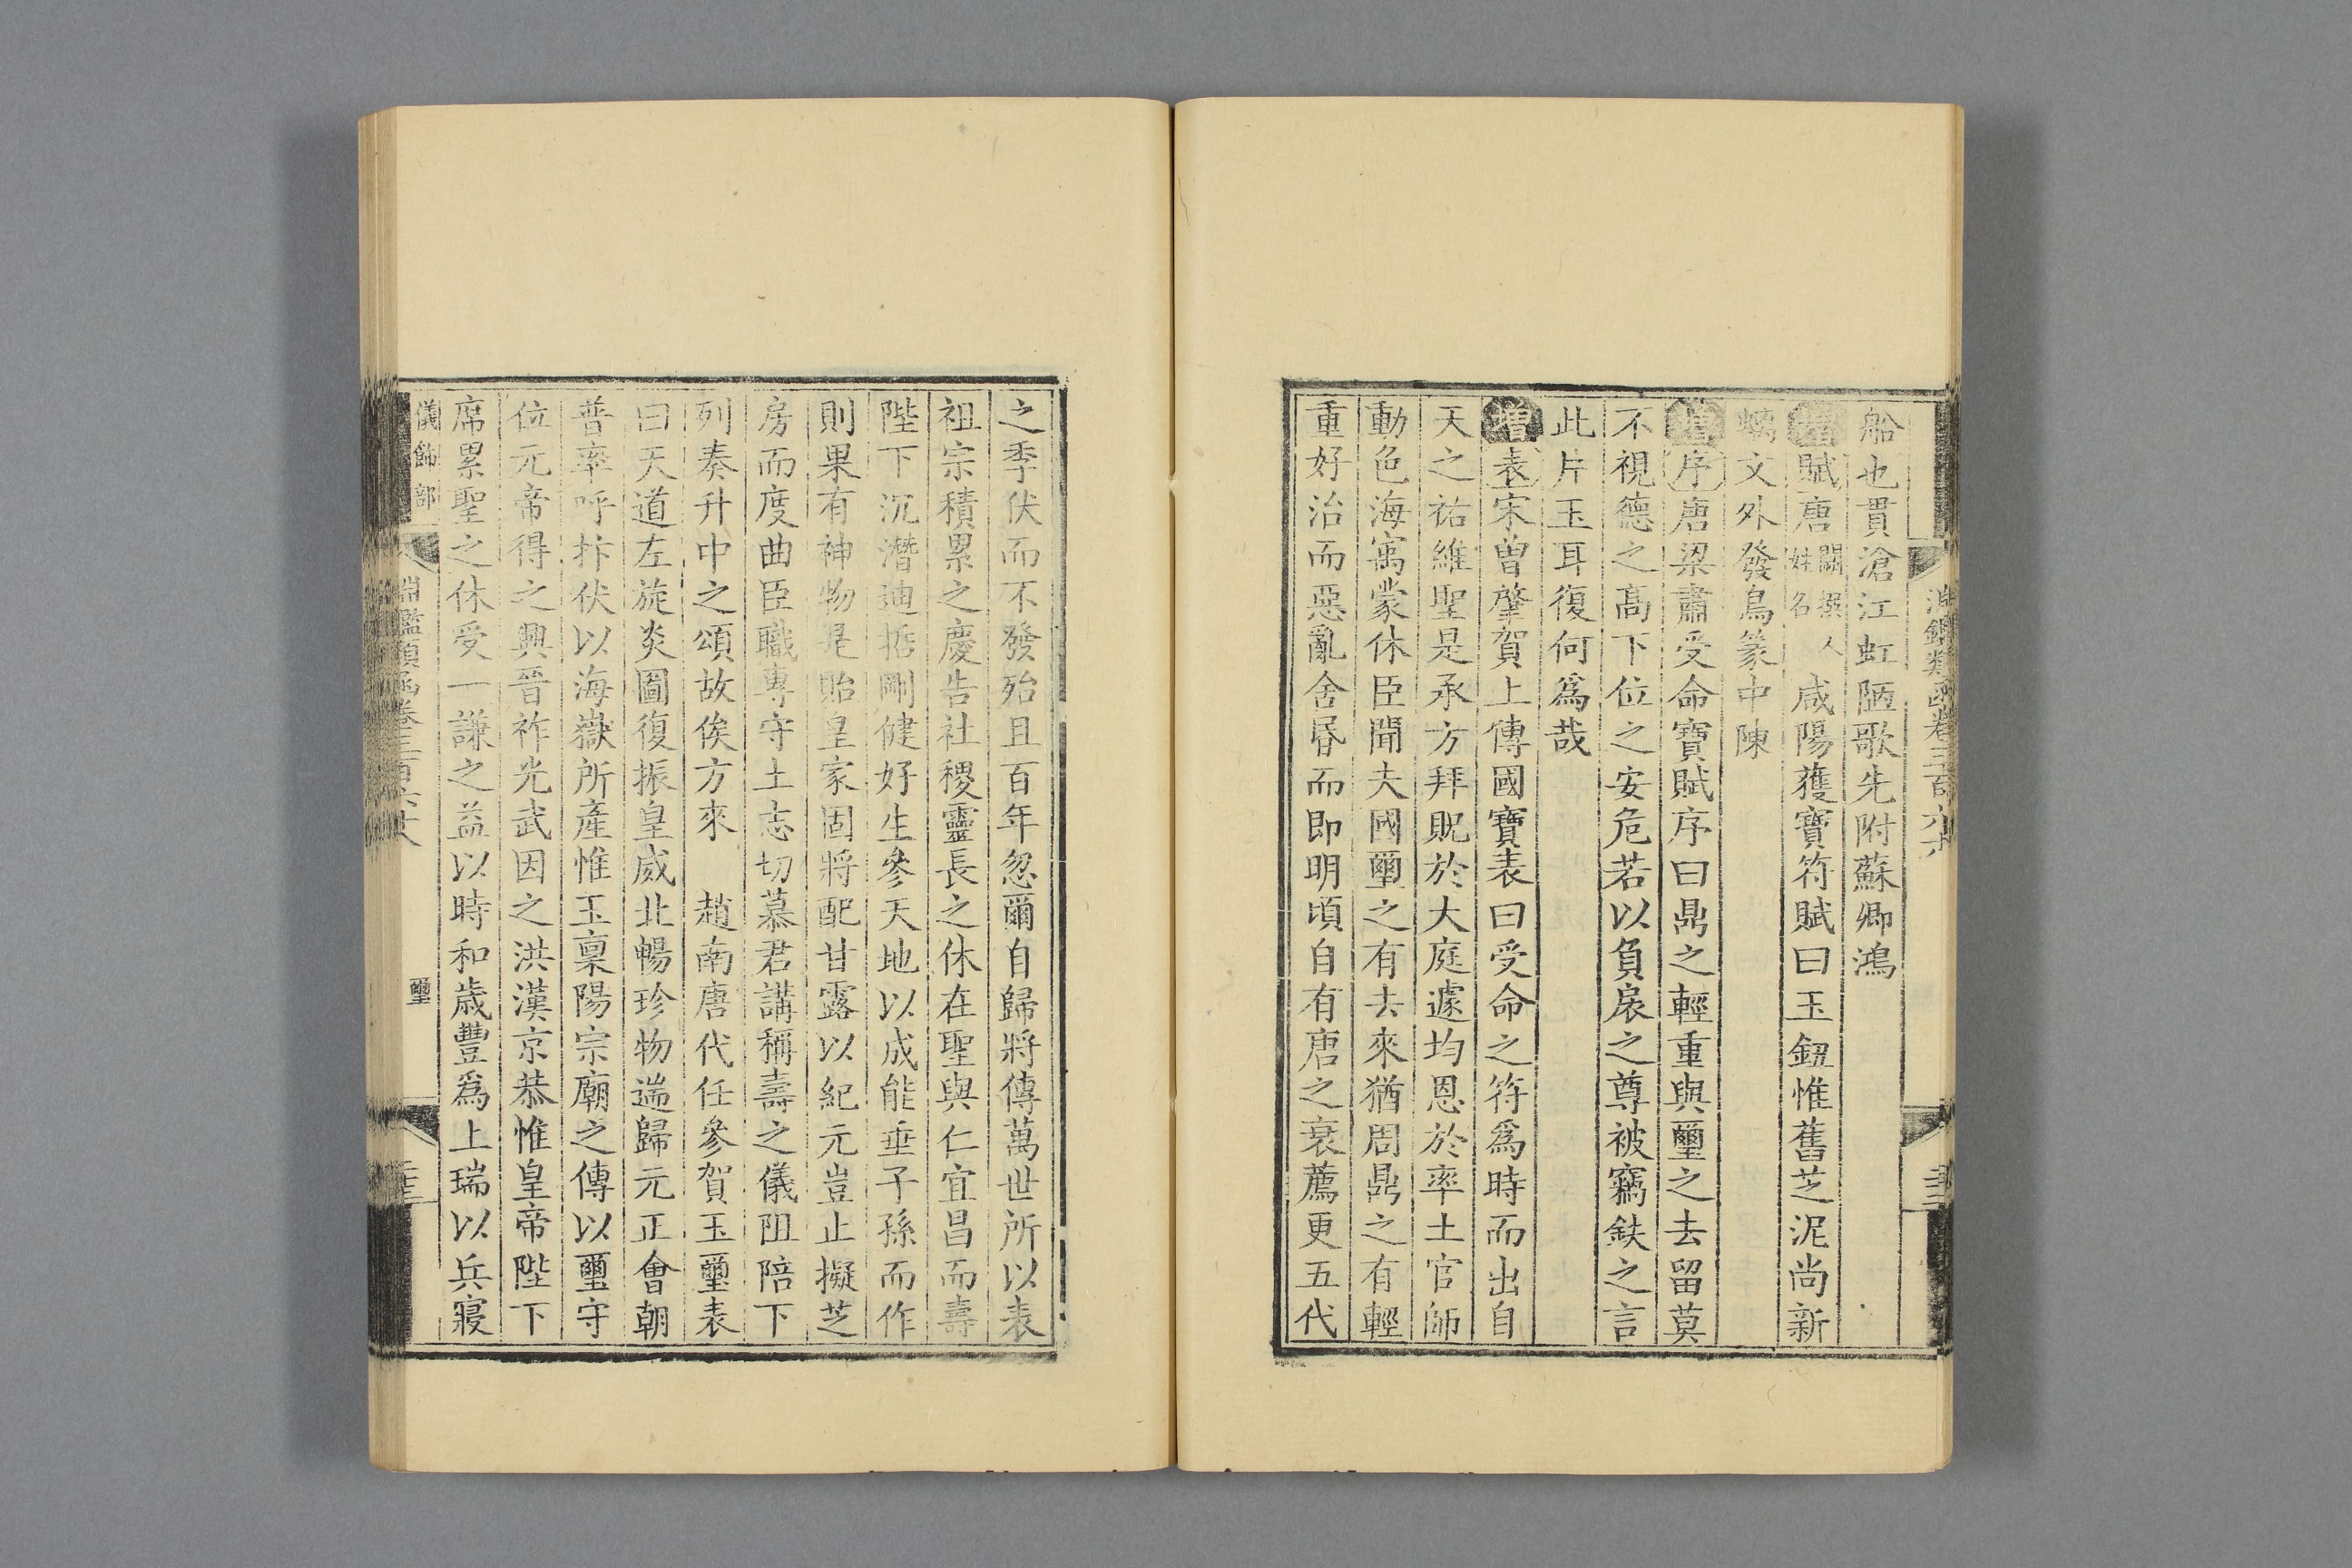 船也貫滄江虹陋歌先附蘇卿鴻
增賦唐闕撰人姓名咸陽獲寶符賦曰玉鈕惟舊芝泥尚新
螭文外發鳥篆中陳
增序唐梁肅受命寶賦序曰鼎之輕重與璽之去留莫
不視德之高下位之安危若以負扆之尊被竊鈇之言
此片玉耳復何爲哉
增表宋曾肇賀上傳國寶表曰受命之符爲時而出自
天之祐維聖是承方拜貺於大庭遽均恩於率土官師
動色海寓蒙休臣聞夫國璽之有去來猶周鼎之有輕
重好治而惡亂舍昬而即明頃自有唐之衰薦更五代
之季伏而不發殆且百年忽爾自歸將傳萬世所以表
祖宗積累之慶告社稷靈長之休在聖與仁宜昌而壽
陛下沉潛迪哲剛健好生參天地以成能垂子孫而作
則果有神物是貽皇家固將配甘露以紀元豈止擬芝
房而度曲臣職專守土志切慕君講稱壽之儀阻陪下
列奏升中之頌故俟方來　趙南唐代任參賀玉璽表
曰天道左旋炎圖復振皇威北暢珍物遄歸元正會朝
普率呼抃伏以海嶽所產惟玉稟陽宗廟之傳以璽守
位元帝得之興晉祚光武因之洪漢京恭惟皇帝陛下
席累聖之休受一謙之益以時和歲豐爲上瑞以兵寢
儀飾部
淵鑑類函卷三百六十八
璽